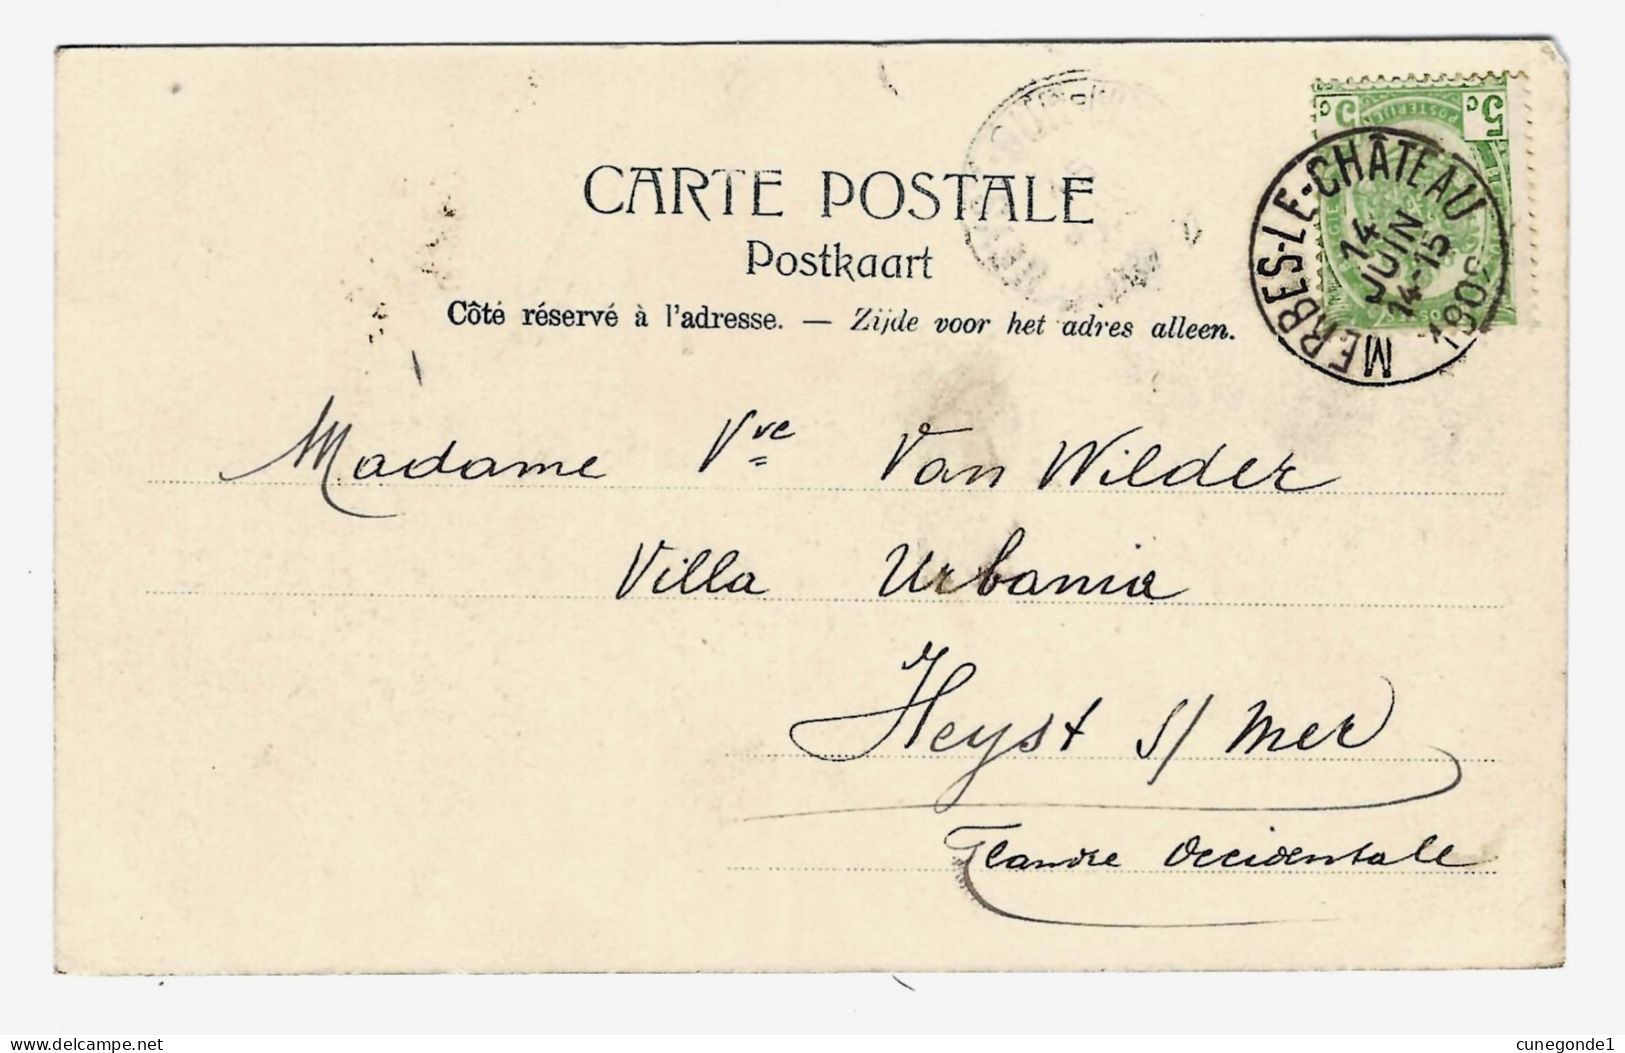 CARTE POSTALE
Postkaart
Côté réservé à l'adresse. — Zijde voor het adres alleen.
MERBES-LE-CHÂTEAU
14
JUIN
14-15
5c 5c
Madame Vve Van Wilder
Villa Urbania
Heyst s/ mer
Flandre Occidentale
www.delcampe.net
cunegonde1